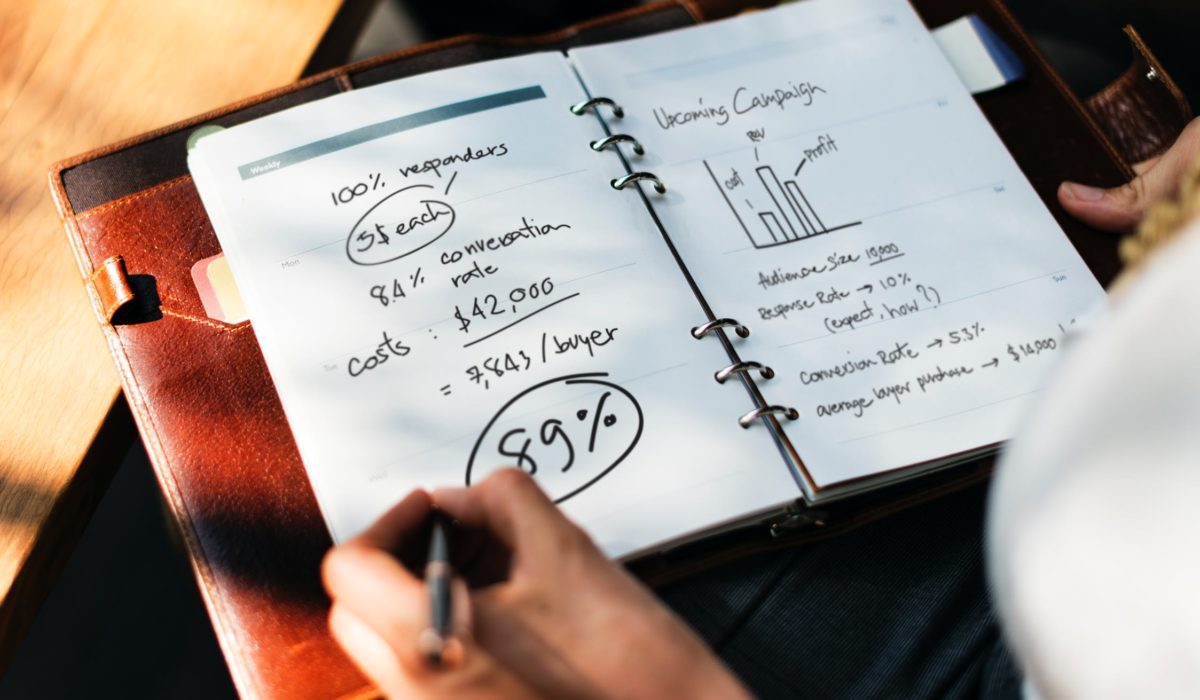 Weekly
100% responders
3$ each
8.4% conversation
rate
Mon
costs : $42,000
= 7,843 / buyer
89%
Upcoming Campaign
cost
rev
profit
Audience Size 10,000
Response Rate → 10%
(expect, how?)
Conversion Rate → 5.3%
average buyer purchase → $14,000
Sun